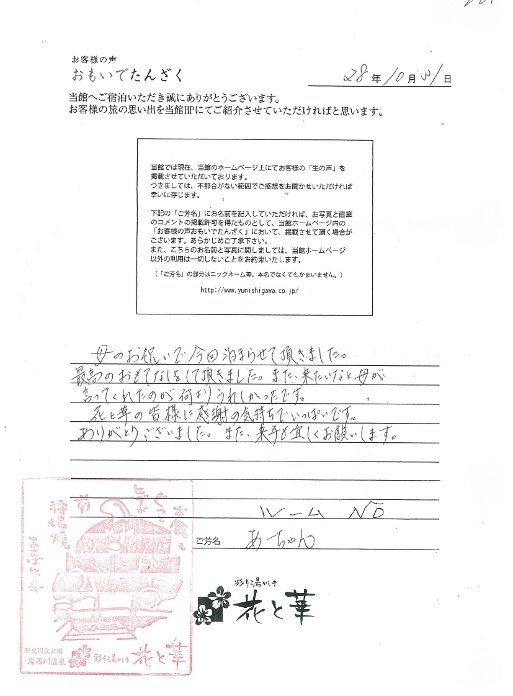 お客様の声
おもいでたんざく
28年10月31日
当館へご宿泊いただき誠にありがとうございます。
お客様の旅の思い出を当館HPにてご紹介させていただければと思います。
当館では現在、当館のホームページ上にてお客様の「生の声」を
掲載させていただいております。
つきましては、不都合がない範囲でご感想をお聞かせいただければ
幸いに存じます。
下記の「ご芳名」にお名前を記入していただければ、お写真と直筆
のコメントの掲載許可を得たものとして、当館ホームページ内の
「お客様の声おもいでたんざく」において、掲載させて頂く場合が
ございます。あらかじめご了承下さい。
また、こちらのお名前と写真に関しましては、当館ホームページ
以外の利用は一切しないことをお約束いたします。
(「ご芳名」の部分はニックネーム等、本名でなくてもかまいません。)
http://www.yunishigawa.co.jp/
母のお祝いで今回泊まらせて頂きました。
最高のおもてなしをして頂きました。また、来たいなと母が
言ってくれたのが何よりうれしかったです。
花と華の皆様に感謝の気持ちでいっぱいです。
ありがとうございました。また、来年も宜しくお願いします。
ルーム NO
ご芳名 あーちゃん
彩り湯かしき
花と華
日光国立公園
湯西川温泉
彩り湯かしき 花と華